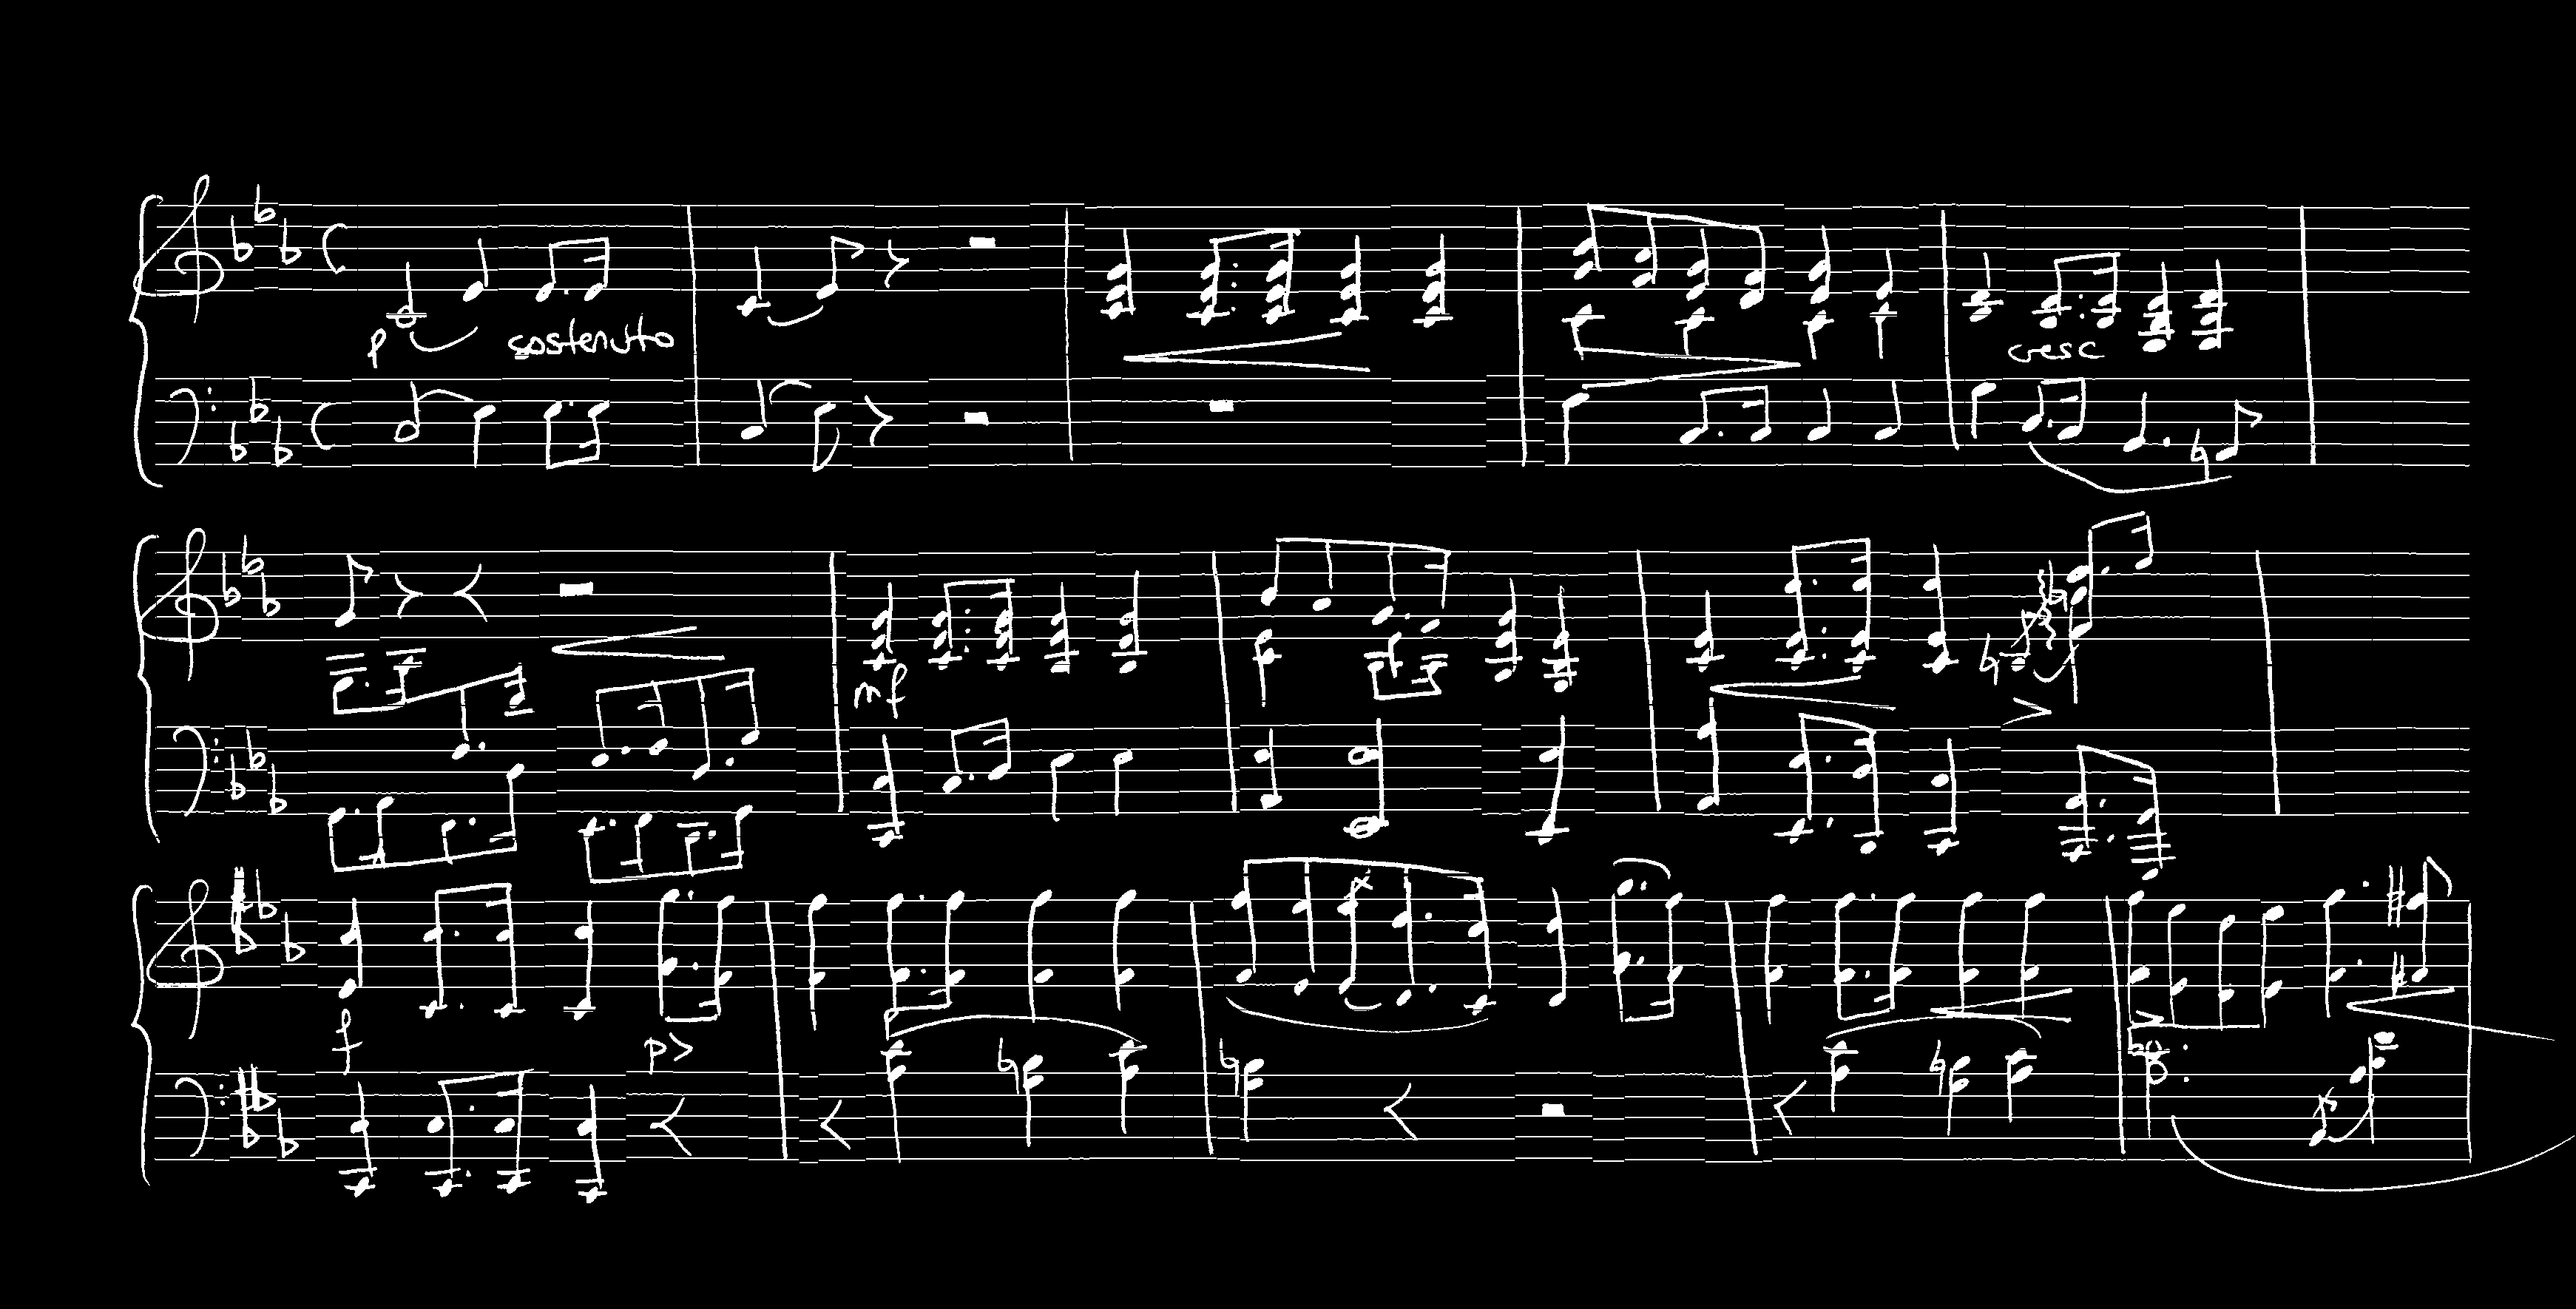 p sostenuto
cresc
mf
f p